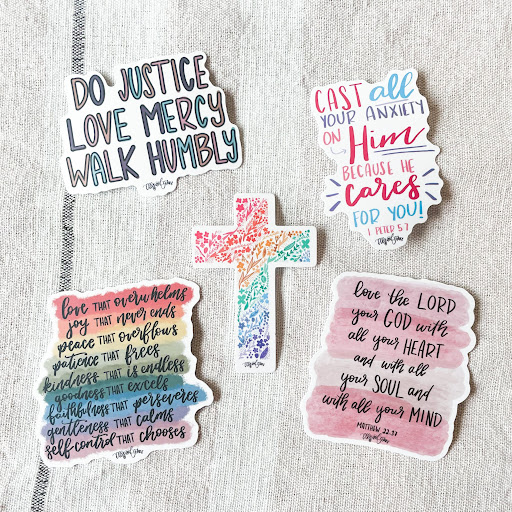 DO JUSTICE
LOVE MERCY
WALK HUMBLY
CAST all
YOUR ANXIETY
ON Him
BECAUSE HE
cares
FOR YOU!
1 PETER 5:7
love THAT overwhelms
joy THAT never ends
peace THAT overflows
patience THAT frees
kindness THAT is endless
goodness THAT excels
faithfulness THAT perseveres
gentleness THAT calms
self control THAT chooses
love the LORD
your GOD with
all your HEART
and with all
your SOUL and
with all your MIND
MATTHEW 22:37